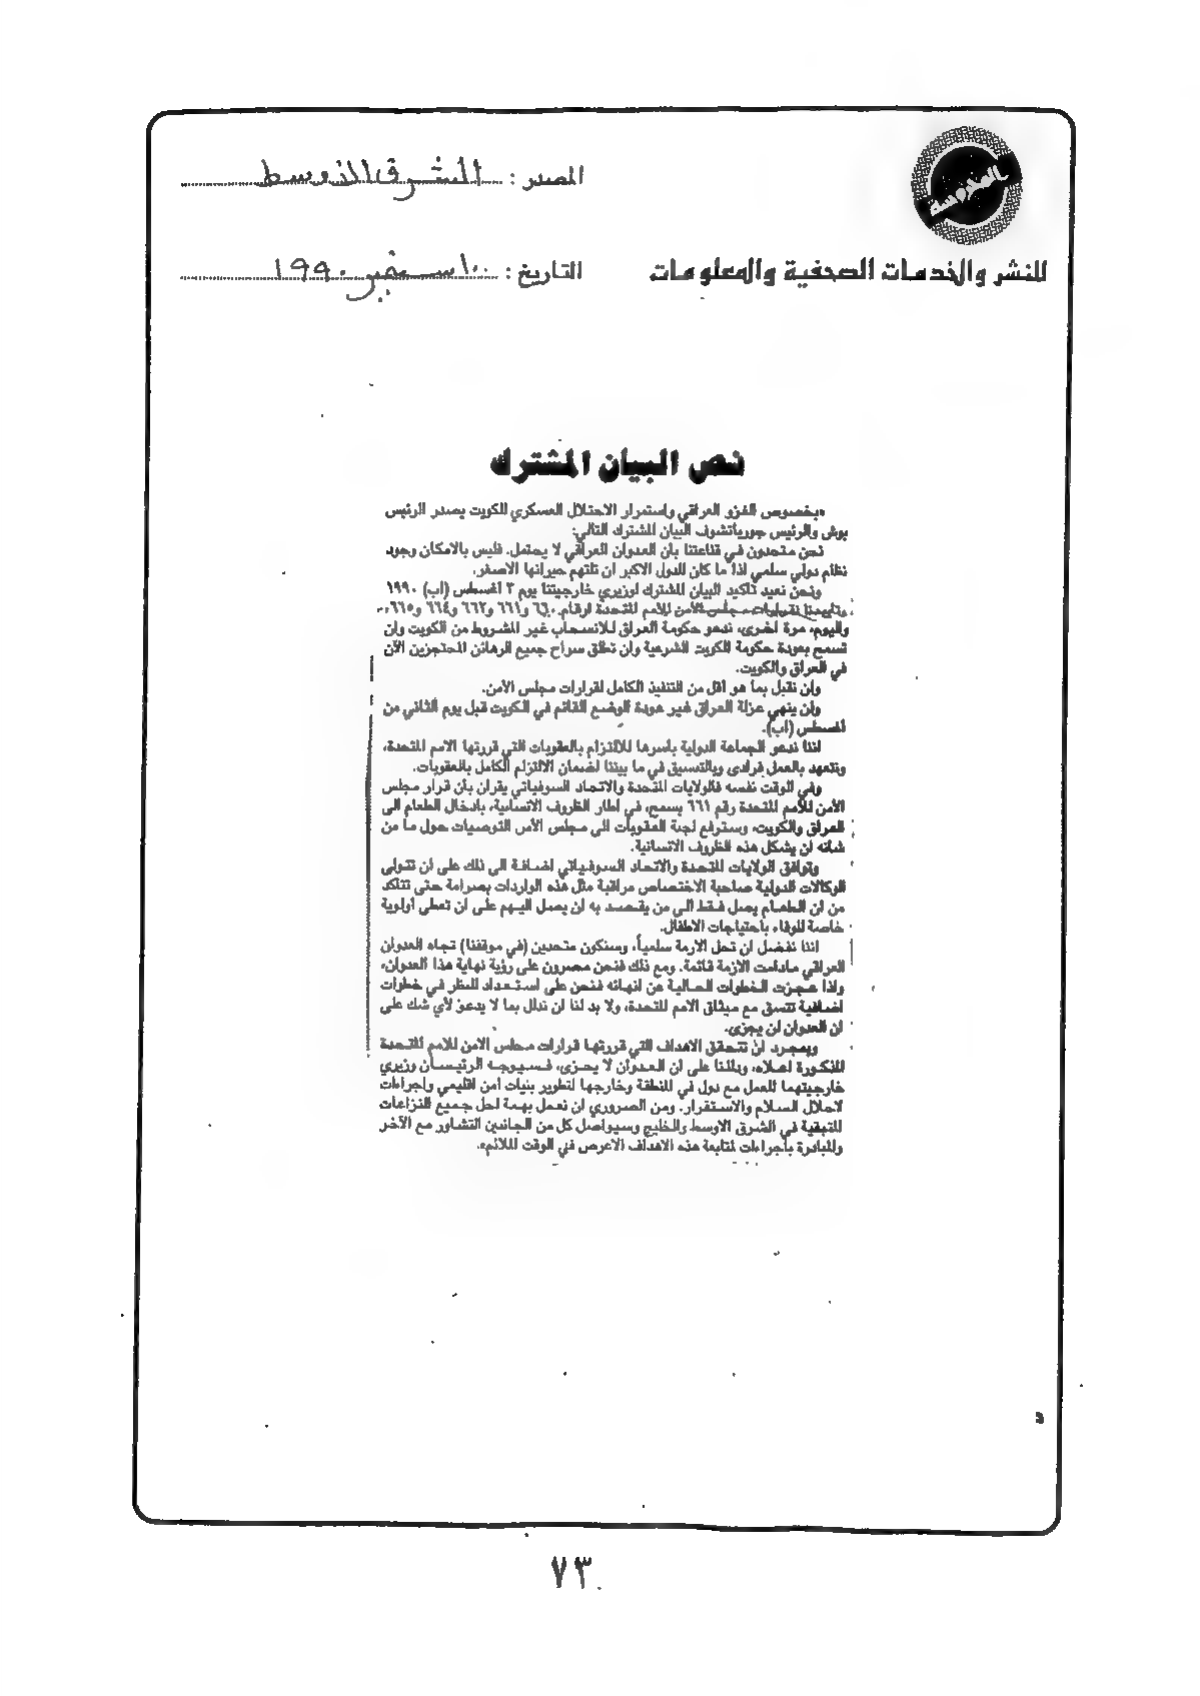 المصدر : الشرق الاوسط
المحروسة
التاريخ : ١٠ سبتمبر ١٩٩٠
للنشر والخدمات الصحفية والمعلومات
نص البيان المشترك
«بخصوص الغزو العراقي واستمرار الاحتلال العسكري للكويت يصدر الرئيس
بوش والرئيس جورباتشوف البيان المشترك التالي:
نحن متحدون في قناعتنا بان العدوان العراقي لا يحتمل. فليس بالامكان وجود
نظام دولي سلمي اذا ما كان للدول الاكبر ان تلتهم جيرانها الاصغر.
ونحن نعيد تأكيد البيان المشترك لوزيري خارجيتنا يوم ٣ أغسطس (اب) ١٩٩٠
وتأييدنا لقرارات مجلس الأمن للأمم المتحدة ارقام ٦٦٠ و٦٦١ و٦٦٢ و٦٦٤ و٦٦٥.
واليوم، مرة اخرى، ندعو حكومة العراق للانسحاب غير المشروط من الكويت وان
تسمح بعودة حكومة الكويت الشرعية وان تطلق سراح جميع الرهائن المحتجزين الآن
في العراق والكويت.
ولن نقبل بما هو أقل من التنفيذ الكامل لقرارات مجلس الأمن.
ولن ينهي عزلة العراق غير عودة الوضع القائم في الكويت قبل يوم الثاني من
اغسطس (اب).
اننا ندعو الجماعة الدولية بأسرها للالتزام بالعقوبات التي قررتها الامم المتحدة،
ونتعهد بالعمل فرادى وبالتنسيق في ما بيننا لضمان الالتزام الكامل بالعقوبات.
وفي الوقت نفسه فالولايات المتحدة والاتحاد السوفياتي يقران بأن قرار مجلس
الأمن للأمم المتحدة رقم ٦٦١ يسمح، في اطار الظروف الانسانية، بادخال الطعام الى
العراق والكويت، وسترفع لجنة العقوبات الى مجلس الأمن التوصيات حول ما من
شأنه ان يشكل هذه الظروف الانسانية.
وتوافق الولايات المتحدة والاتحاد السوفياتي اضافة الى ذلك على ان تتولى
الوكالات الدولية صاحبة الاختصاص مراقبة مثل هذه الواردات بصرامة حتى تتأكد
من ان الطعام يصل فقط الى من يقصد به ان يصل اليهم على ان تعطى أولوية
خاصة للوفاء باحتياجات الاطفال.
اننا نفضل ان تحل الازمة سلمياً، وسنكون متحدين (في موقفنا) تجاه العدوان
العراقي مادامت الازمة قائمة. ومع ذلك فنحن مصرون على رؤية نهاية هذا العدوان،
واذا عجزت الخطوات الحالية عن انهائه فنحن على استعداد للنظر في خطوات
اضافية تتسق مع ميثاق الامم المتحدة، ولا بد لنا ان ندلل بما لا يدعو لأي شك على
ان العدوان لن يجزى.
وبمجرد ان تتحقق الاهداف التي قررتها قرارات مجلس الامن للأمم المتحدة
المذكورة اعلاه، ودللنا على ان العدوان لا يجزى، فسيوجه الرئيسان وزيري
خارجيتهما للعمل مع دول في المنطقة وخارجها لتطوير بنيات أمن اقليمي واجراءات
لاحلال السلام والاستقرار. ومن الضروري ان نعمل بهمة لحل جميع النزاعات
المتبقية في الشرق الاوسط والخليج وسيواصل كل من الجانبين التشاور مع الآخر
والمبادرة بأجراءات لمتابعة هذه الاهداف الاعرض في الوقت الملائم».
٧٣